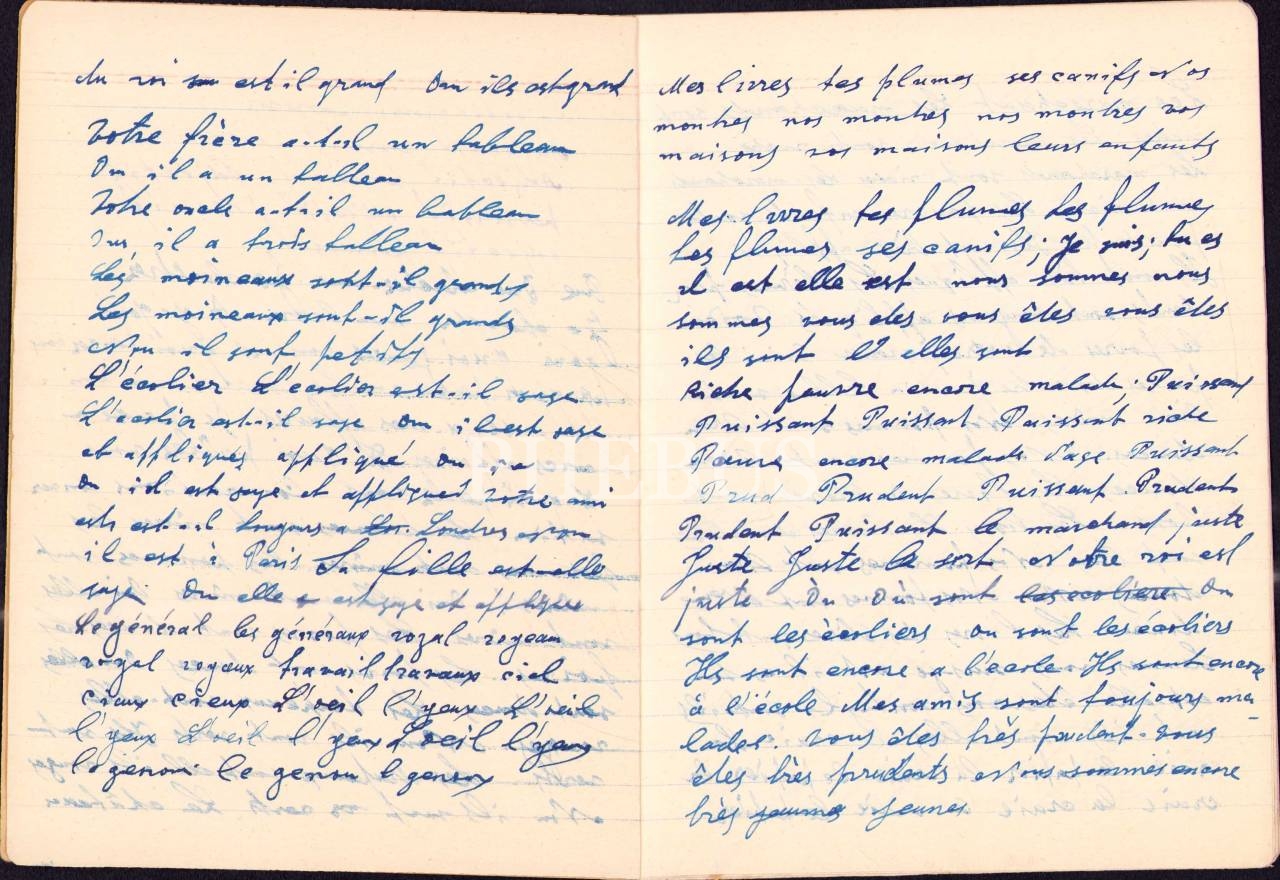 du roi est il grand Oui ils est grand
Votre frère a-t-il un tableau
Oui il a un tableau
Votre oncle a-t-il un tableau
Oui il a trois tableau
Les moineaux sont-il grands
Les moineaux sont-il grands
Non il sont petits
L'écolier L'écolier est-il sage
L'écolier est-il sage Oui il est sage
et appliqués appliqué Oui
Oui il est sage et appliqué votre ami
est-il toujours a Londres Non
il est à Paris La fille est-elle
sage Oui elle est sage et appliquée
Le général les généraux royal royeau
royal royaux travail travaux ciel
ciaux cieux L'oeil l'yeux L'oeil
l'yeux L'oeil l'yeux L'oeil l'yeux
le genoui le genou l genoux
Mes livres tes plumes ses canifs Nos
montres nos montres nos montres vos
maisons vos maisons leurs enfants
Mes livres tes plumes tes plumes
tes plumes ses canifs; Je suis; tu es
il est elle est nous sommes nous
sommes vous etes vous êtes vous êtes
ils sont elles sont
Riche pauvre encore malade; Puissant
Puissant Puissant Puissant riche
Pauvre encore malade Puissant
Prud Prudent Puissant Prudent
Prudent Puissant le marchand juste
Juste Juste le sort Notre roi est
juste Où Où sont les écoliere Ou
sont les écoliers ou sont les écoliers
Ils sont encore a l'école. Ils sont encore
à l'école Mes amis sont toujours ma-
lades. vous êtes très prudent. vous
êtes très prudents Nous sommes encore
très jeunes
PHEBUS